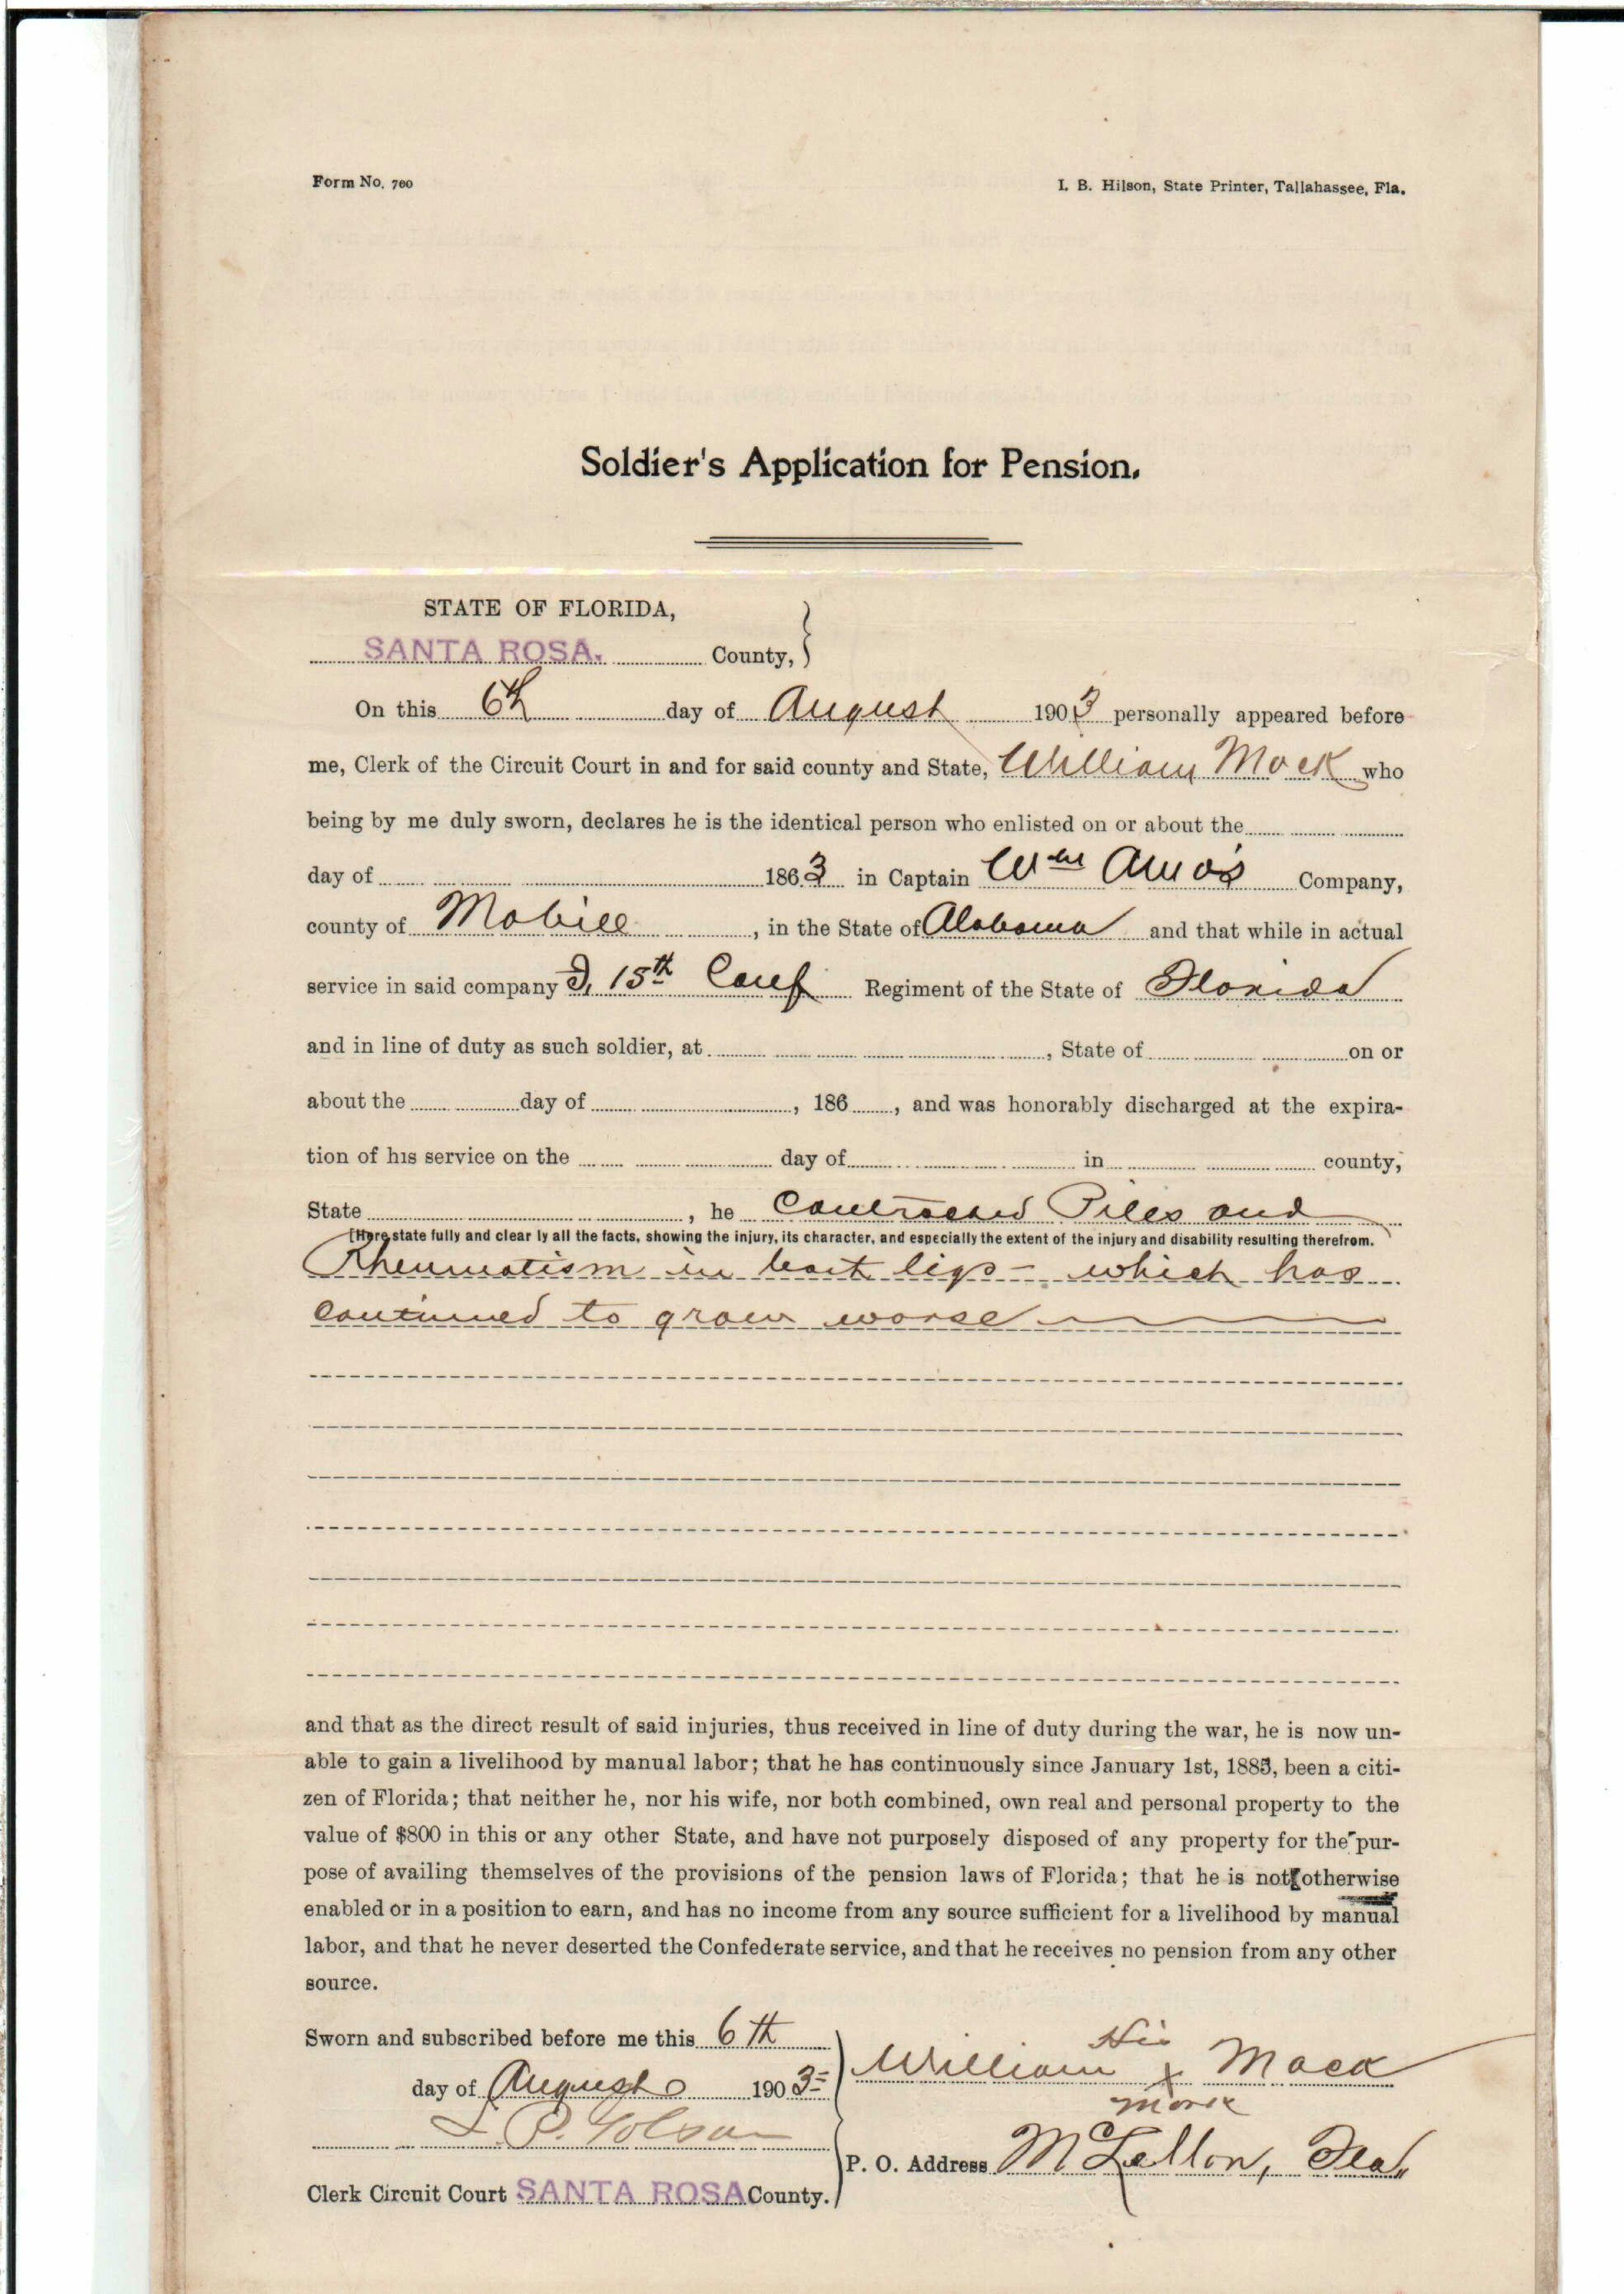 Form No. 700
I. B. Hilson, State Printer, Tallahassee, Fla.
Soldier's Application for Pension.
STATE OF FLORIDA,
SANTA ROSA. County,
On this 6th day of August 1903 personally appeared before
me, Clerk of the Circuit Court in and for said county and State, William Mack who
being by me duly sworn, declares he is the identical person who enlisted on or about the
day of 1863 in Captain Wm Amos Company,
county of Mobile, in the State of Alabama and that while in actual
service in said company I, 15th Conf Regiment of the State of Florida
and in line of duty as such soldier, at , State of on or
about the day of , 186 , and was honorably discharged at the expira-
tion of his service on the day of in county,
State , he Contracted Piles and
[Here state fully and clear ly all the facts, showing the injury, its character, and especially the extent of the injury and disability resulting therefrom.
Rheumatism in boat ligs – which has
continued to grow worse
and that as the direct result of said injuries, thus received in line of duty during the war, he is now un-
able to gain a livelihood by manual labor; that he has continuously since January 1st, 1885, been a citi-
zen of Florida; that neither he, nor his wife, nor both combined, own real and personal property to the
value of $800 in this or any other State, and have not purposely disposed of any property for the pur-
pose of availing themselves of the provisions of the pension laws of Florida; that he is not otherwise
enabled or in a position to earn, and has no income from any source sufficient for a livelihood by manual
labor, and that he never deserted the Confederate service, and that he receives no pension from any other
source.
Sworn and subscribed before me this 6th
day of August 1903
His
William x Mack
mark
P. O. Address McLellon, Fla.
Clerk Circuit Court SANTA ROSA County.